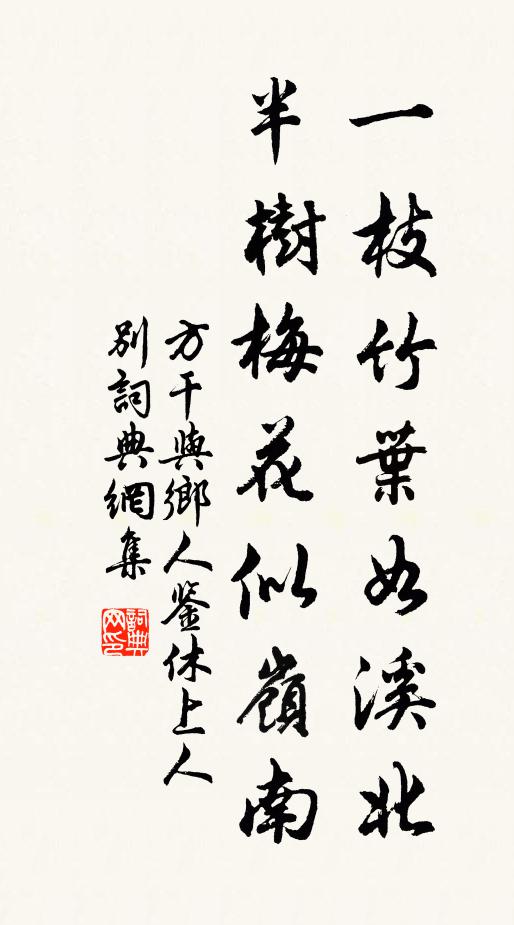 一枝竹葉如溪北
半樹梅花似嶺南
方干與鄉人鉴休上人
別詞典網集
詞典
网印